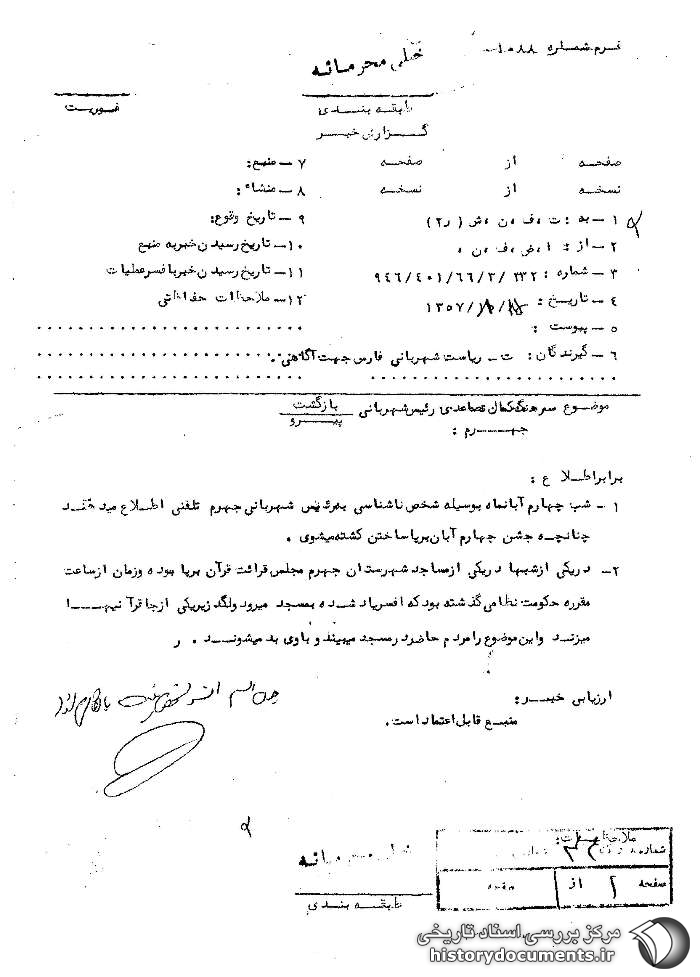 فرم شماره ۱۰۸۸
خیلی محرمانه
طبقه بندی
فوریت
گزارش خبر
صفحه از صفحه
نسخه از نسخه
۱ – به : ت ، ف ، ن ، ش ( ر۲ )
۲ – از :
۳ – شماره : ۲۳۲ /۹۴۶/۴۰۱/۶۶/۲
۴ – تاریخ : /۱۳۵۷
۵ – پیوست :
۶ – گیرندگان : ت – ریاست شهربانی فارس جهت آگاهی .
۷ – منبع :
۸ – منشاء :
۹ – تاریخ وقوع :
۱۰ – تاریخ رسیدن خبر به منبع
۱۱ – تاریخ رسیدن خبر بافسر عملیات
۱۲ – ملاحظات حفاظتی
موضوع سرهنگ کمال رئیس شهربانی جهرم :
بازگشت
پیرو
برابر اطلاع :
۱ – شب چهارم آبانماه بوسیله شخص ناشناسی به رئیس شهربانی جهرم تلفنی اطلاع میدهند
چنانچه جشن چهارم آبان برپا ساختن کشته میشوی .
۲ – در یکی از شبها در یکی از مساجد شهرستان جهرم مجلس قرائت قرآن برپا بوده وزمان از ساعت
مقرره حکومت نظامی گذشته بود که افسر یاد شده به مسجد میرود ولگد زیر یکی از جا قرآنیها
میزند واین موضوع را مردم حاضر در مسجد میبینند و باوی بد میشوند .
ارزیابی خبر :
منبع قابل اعتماد است .
خیلی محرمانه
طبقه بندی
ملاحظات :
شماره
صفحه ۱ از صفحه
مرکز بررسی اسناد تاریخی
historydocuments.ir